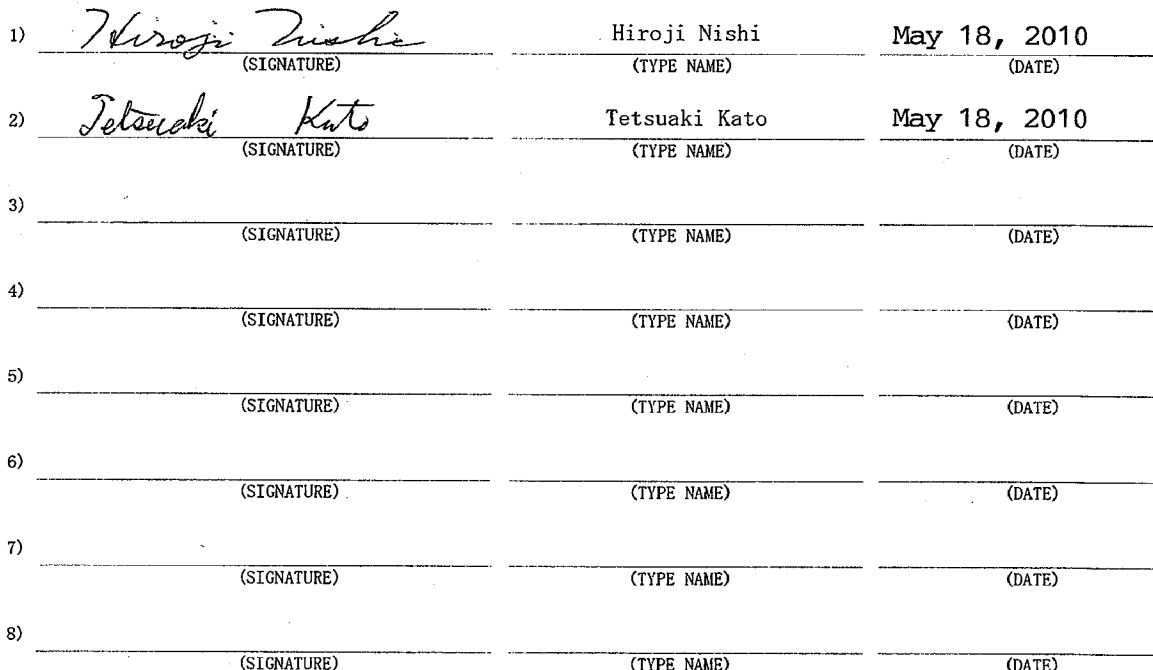 1) Hiroji Nishi Hiroji Nishi May 18, 2010
(SIGNATURE) (TYPE NAME) (DATE)
2) Tetsuaki Kato Tetsuaki Kato May 18, 2010
(SIGNATURE) (TYPE NAME) (DATE)
3)
(SIGNATURE) (TYPE NAME) (DATE)
4)
(SIGNATURE) (TYPE NAME) (DATE)
5)
(SIGNATURE) (TYPE NAME) (DATE)
6)
(SIGNATURE) (TYPE NAME) (DATE)
7)
(SIGNATURE) (TYPE NAME) (DATE)
8)
(SIGNATURE) (TYPE NAME) (DATE)